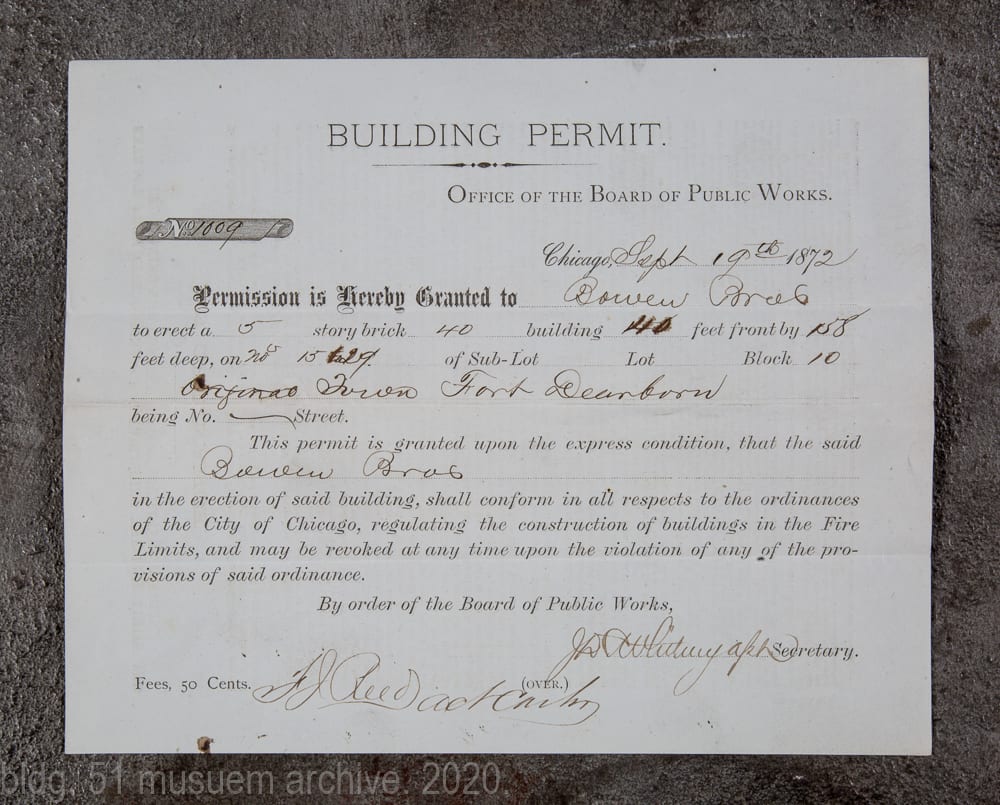 BUILDING PERMIT.
OFFICE OF THE BOARD OF PUBLIC WORKS.
No. 1009
Chicago, Sept 19th 1872
Permission is Hereby Granted to Bowen Bros
to erect a 5 story brick 40 building feet front by 158
feet deep, on 15 of Sub-Lot Lot Block 10
Original Town Fort Dearborn
being No. Street.
This permit is granted upon the express condition, that the said
Bowen Bros
in the erection of said building, shall conform in all respects to the ordinances
of the City of Chicago, regulating the construction of buildings in the Fire
Limits, and may be revoked at any time upon the violation of any of the pro-
visions of said ordinance.
By order of the Board of Public Works,
Secretary.
Fees, 50 Cents. (OVER.)
bldg. 51 musuem archive. 2020